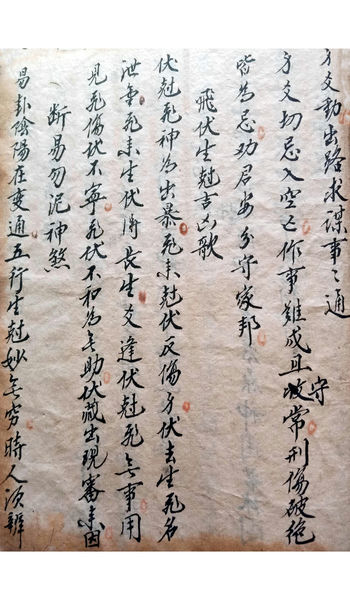 身爻動出路求謀事〻通
身爻切忌入空亡作事難成且守常刑傷破絶
皆為忌劝君安分守家邦
飛伏生尅吉凶歌
伏尅飛神為出暴飛来尅伏反傷身伏去生飛名
泄氣飛来生伏得長生爻逢伏尅飛無事用
見飛傷伏不寧飛伏不和為無助伏藏出現審来因
断易勿泥神煞
易卦陰陽在變通五行生尅妙無窮時人須辨